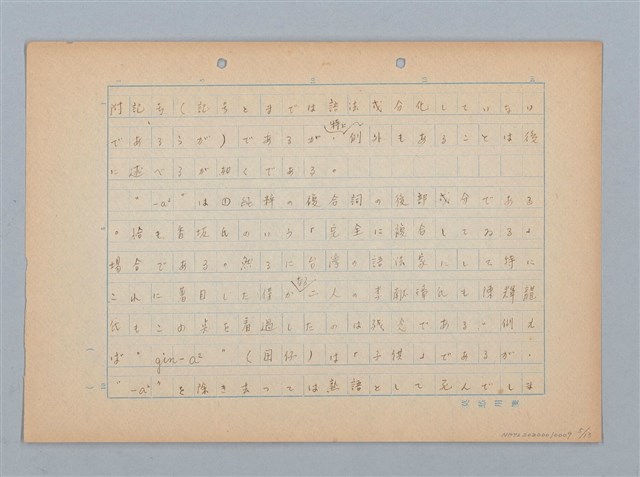 附記号(記号とまでは語法成分化していない
であろうが)であるが、特に例外もあることは後
に述べるが如くである。
"-a²"は①純粋の複合詞の後部成分である
。恰も 氏のいう「完全に複合してゐる」
場合である。然るに台湾の語法家にして特に
これに着目した僅か二人の李献璋氏も陳輝龍
氏もこの点を看過したのは残念である。例え
ば"gin-a²"(囝仔)は「子供」であるが、
"-a²"を除き去っては熟語として死んでしま